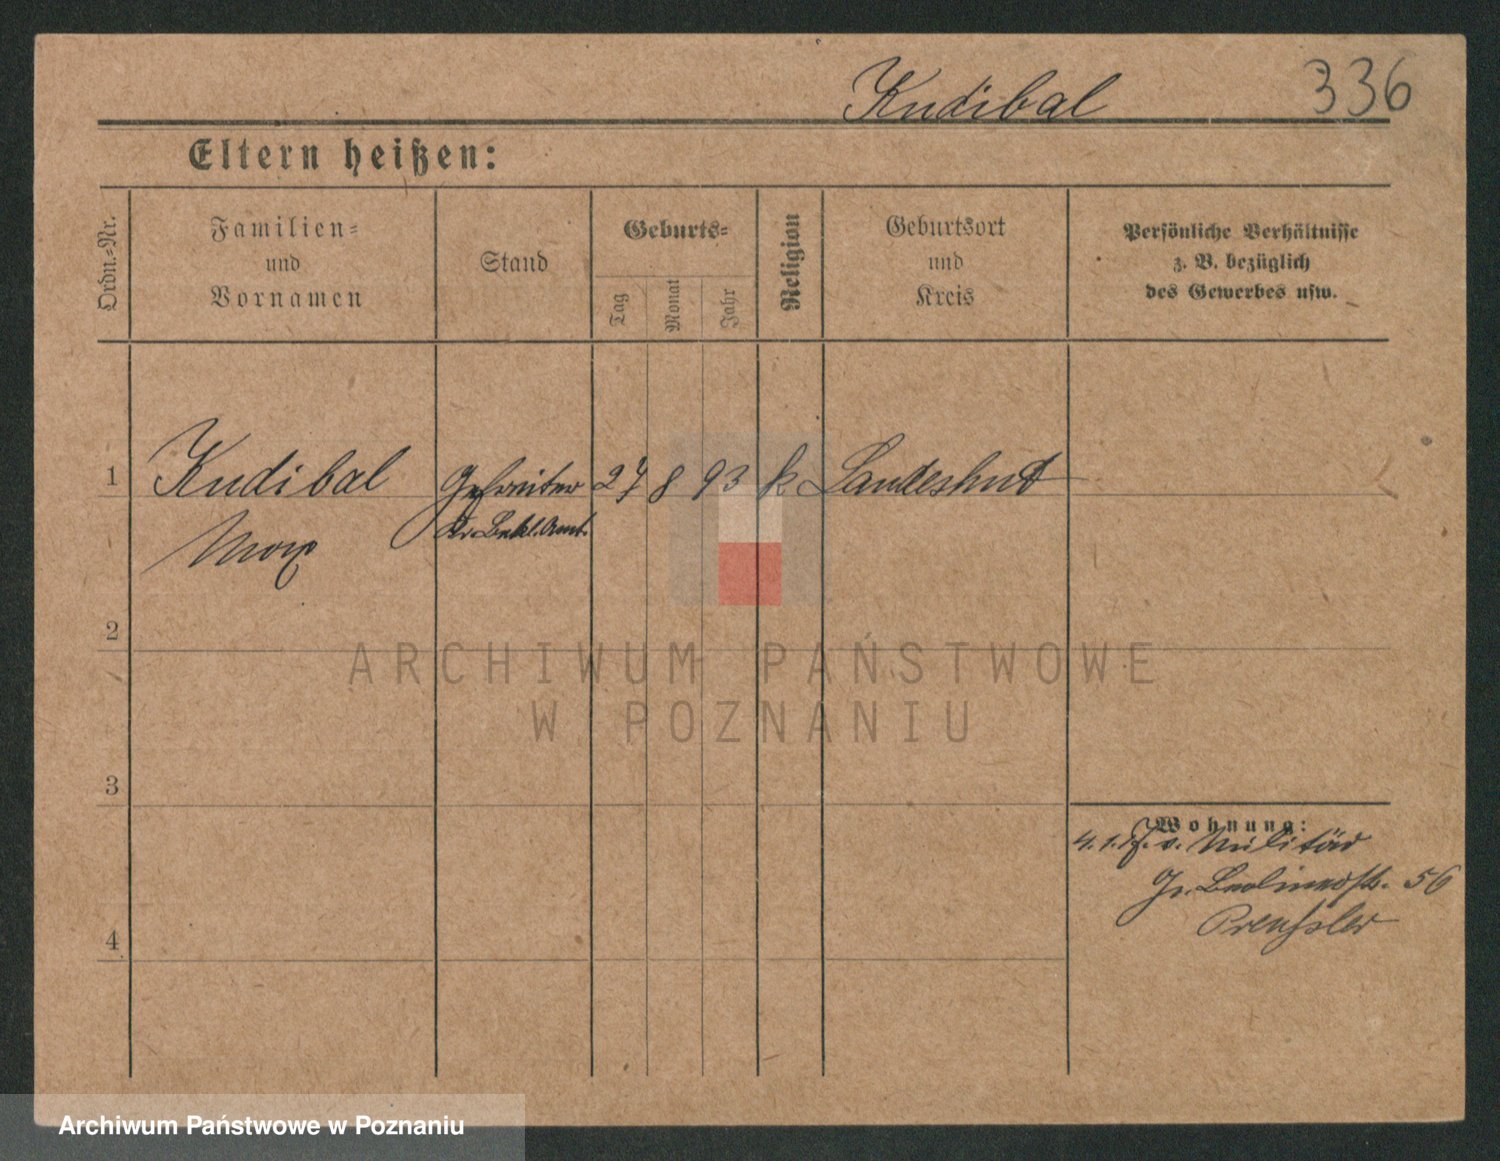 Kudibal 336
Eltern heißen:
Ordn.-Nr.
Familien-
und
Vornamen
Stand
Geburts-
Tag
Monat
Jahr
Religion
Geburtsort
und
Kreis
Persönliche Verhältnisse
z. B. bezüglich
des Gewerbes usw.
1 Kudibal Gefreiter 27 8 93 k Landeshut
Max Kr. Bekl. Amt.
2
3
4
Wohnung:
v. Militär
Gr. Berlinerstr. 56
Preussler
ARCHIWUM PAŃSTWOWE
W POZNANIU
Archiwum Państwowe w Poznaniu